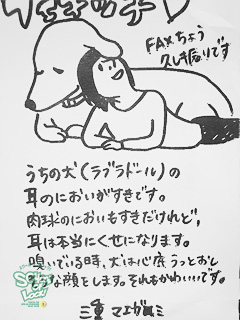 FAXちょう
久しき振りです
うちの犬(ラブラドール)の
耳のにおいがすきです。
肉球のにおいもすきだけれど、
耳は本当にくせになります。
嗅いでいる時、犬は心底うっとおし
そうな顔をします。それもかわいいです。
三重 マエガミ